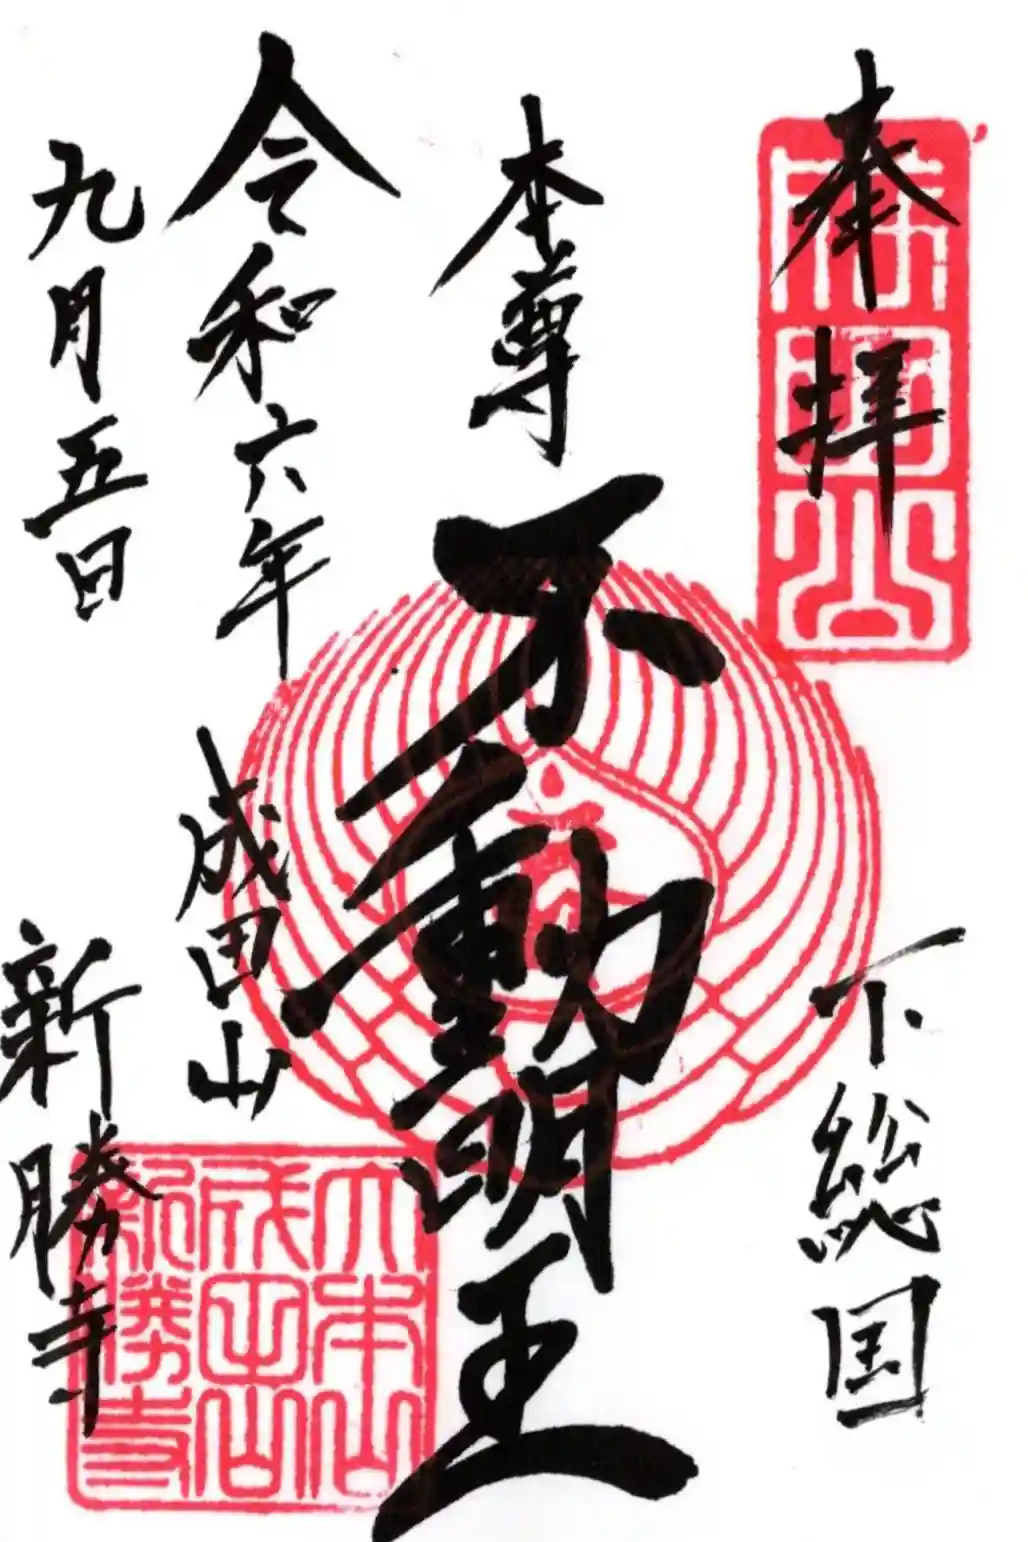 奉拝
下総国
本尊
不動明王
令和六年
九月五日
成田山
新勝寺
大本山
成田山
新勝寺